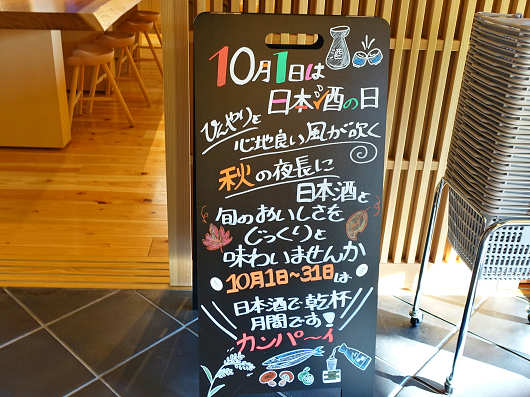 酒
10月1日は
日本酒の日
ひんやりと
心地良い風が吹く
秋の夜長に
日本酒と
旬のおいしさを
じっくりと
味わいませんか
10月1日〜31日は
日本酒で乾杯
月間です!
カンパ〜イ